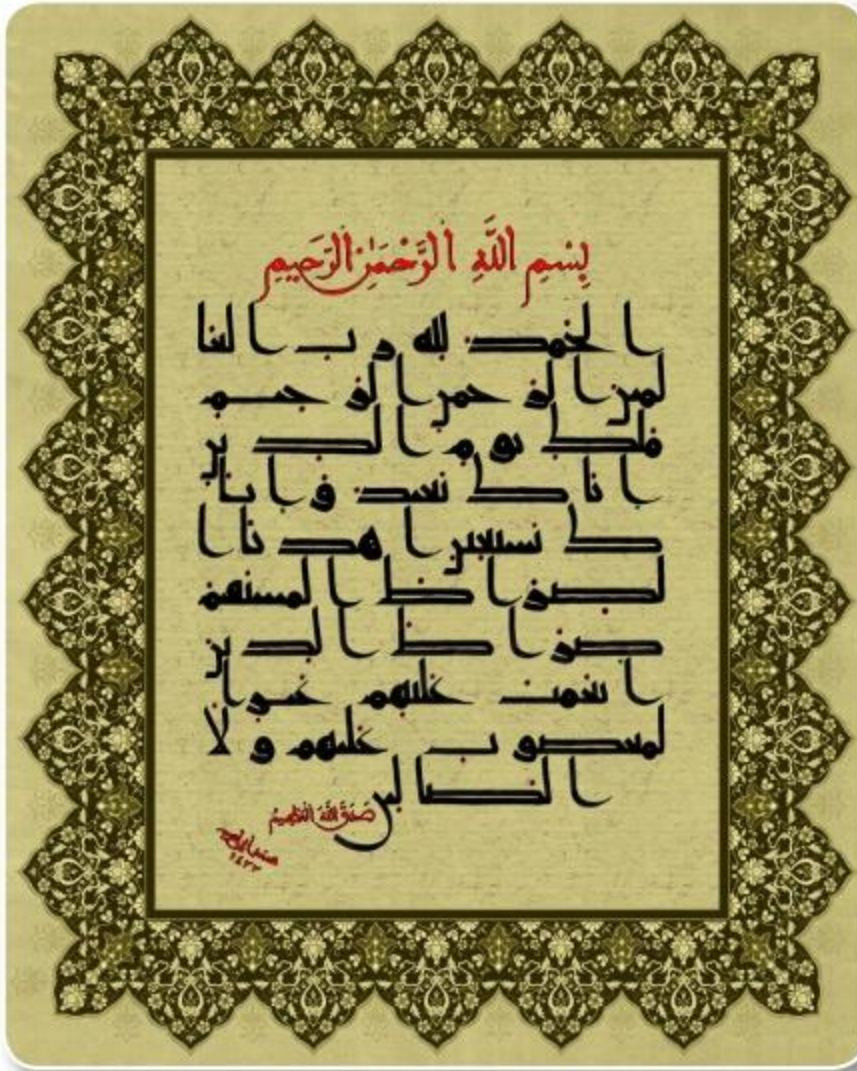 بِسْمِ اللَّهِ الرَّحْمَٰنِ الرَّحِيمِ
الحمد لله رب العا
لمين الرحمن الرحيم
ملك يوم الدين
اياك نعبد و ايا
ك نستعين اهدنا ا
لصراط المستقيم
صراط الذين
انعمت عليهم غير ا
لمغضوب عليهم و لا
الضالين
صَدَقَ اللَّهُ الْعَظِيمُ
١٤٣٣